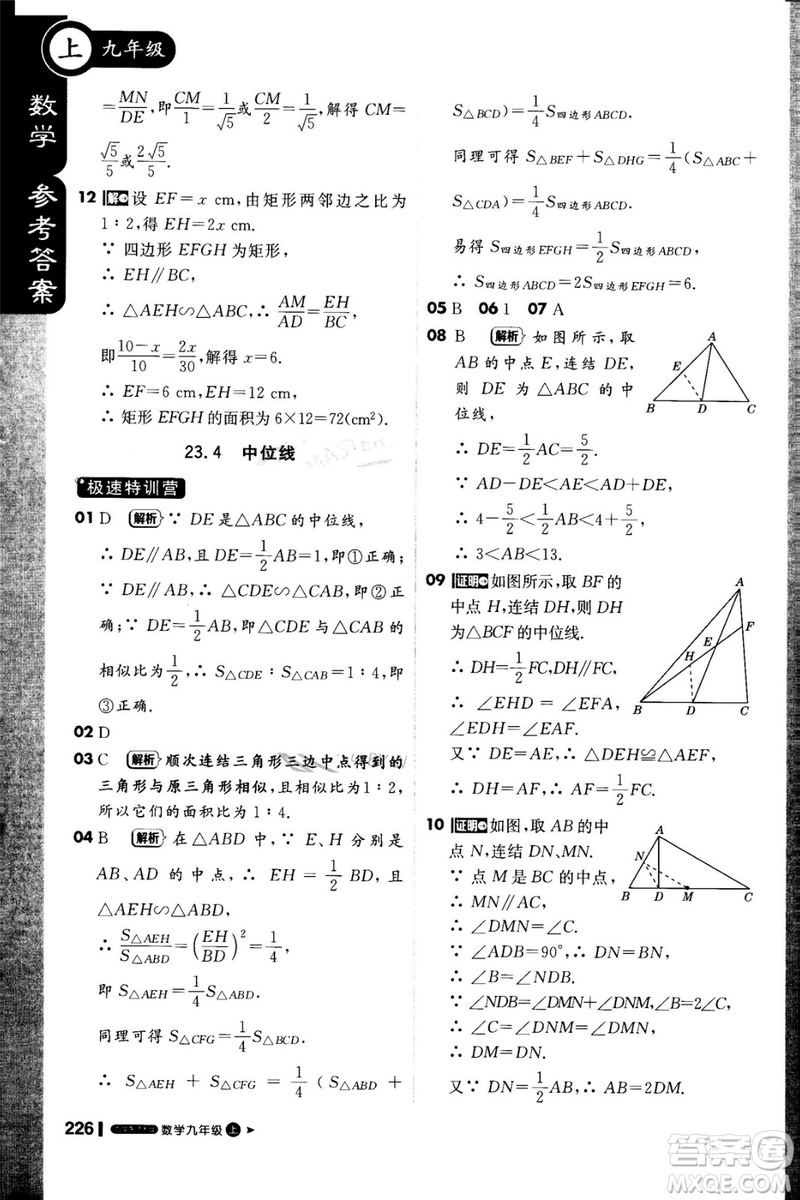 上 九年级
数学 参考答案
=MN/DE,即CM/1=1/√5或CM/2=1/√5,解得 CM=
√5/5或2√5/5.
12 解 设 EF=x cm,由矩形两邻边之比为
1∶2,得 EH=2x cm.
∵ 四边形 EFGH 为矩形,
∴ EH∥BC,
∴ △AEH∽△ABC,∴ AM/AD=EH/BC,
即(10-x)/10=2x/30,解得 x=6.
∴ EF=6 cm,EH=12 cm.
∴ 矩形 EFGH 的面积为 6×12=72(cm²).
23.4 中位线
极速特训营
01 D 解析 ∵ DE 是△ABC 的中位线,
∴ DE∥AB,且 DE=1/2AB=1,即①正确;
∵ DE∥AB,∴ △CDE∽△CAB,即②正
确;∵ DE=1/2AB,即△CDE 与△CAB 的
相似比为1/2,∴ S△CDE∶S△CAB=1∶4,即
③正确.
02 D
03 C 解析 顺次连结三角形三边中点得到的
三角形与原三角形相似,且相似比为 1∶2,
所以它们的面积比为 1∶4.
04 B 解析 在△ABD 中,∵ E、H 分别是
AB、AD 的中点,∴ EH=1/2 BD,且
△AEH∽△ABD,
∴ S△AEH/S△ABD=(EH/BD)²=1/4,
即 S△AEH=1/4S△ABD.
同理可得 S△CFG=1/4S△BCD.
∴ S△AEH + S△CFG = 1/4 (S△ABD +
S△BCD)=1/4S四边形ABCD.
同理可得 S△BEF+S△DHG=1/4(S△ABC+
S△CDA)=1/4S四边形ABCD.
易得 S四边形EFGH=1/2S四边形ABCD,
∴ S四边形ABCD=2S四边形EFGH=6.
05 B 06 1 07 A
08 B 解析 如图所示,取
AB 的中点 E,连结 DE,
则 DE 为△ABC 的中
位线,
∴ DE=1/2AC=5/2.
∵ AD-DE<AE<AD+DE,
∴ 4-5/2<1/2AB<4+5/2,
∴ 3<AB<13.
A
E
B D C
09 证明 如图所示,取 BF 的
中点 H,连结 DH,则 DH
为△BCF 的中位线.
∴ DH=1/2FC,DH∥FC.
∴ ∠EHD =∠EFA,
∠EDH=∠EAF.
又∵ DE=AE,∴ △DEH≌△AEF.
∴ DH=AF,∴ AF=1/2FC.
A
F
E
H
B D C
10 证明 如图,取 AB 的中
点 N,连结 DN、MN.
∵ 点 M 是 BC 的中点,
∴ MN∥AC.
∴ ∠DMN=∠C.
∵ ∠ADB=90°,∴ DN=BN.
∴ ∠B=∠NDB.
∵ ∠NDB=∠DMN+∠DNM,∠B=2∠C,
∴ ∠C=∠DMN=∠DNM.
∴ DM=DN.
又∵ DN=1/2AB,∴ AB=2DM.
A
N
B D M C
226 数学九年级 上
答案圈
MXQE.COM